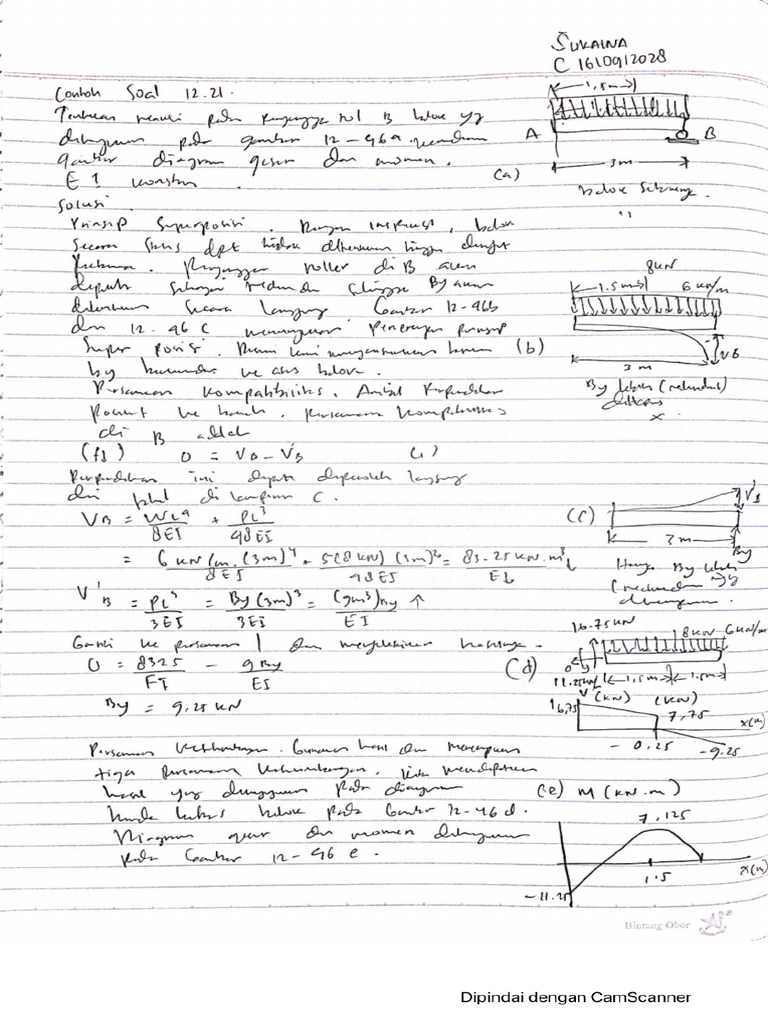 SUKAINA
C 1610912028
Contoh Soal 12.21.
Tentukan reaksi pada penyangga rol B balok yg
ditunjukkan pada gambar 12-46a kemudian
gambar diagram geser dan momen.
EI konstan.
1,5m
A
B
3m
(a)
Solusi.
Prinsip Superposisi. Dengan inspeksi, balok
Secara Statis dpt
roller di B akan
dipilih sebagai redundan sehingga By akan
ditentukan secara langsung. Gambar 12-46b
dan 12.46 C menunjukkan Penerapan prinsip
Super posisi. Disini kami mengasumsikan
by ke atas balok.
Persamaan kompatibilitas. Ambil Perpindahan
Positif ke bawah, persamaan kompatibilitas
di B adalah
8kN
1.5m
6 kN/m
(b)
VB
3 m
By (redundant)
(f1) 0 = VB - V'B (1)
Perpindahan ini dapat diperoleh langsung
dari tabel di lampiran C.
VB = WL⁴/8EI + PL³/48EI
= 6 kN/m.(3m)⁴/8EI + 5(8kN)(3m)³/48EI = 83.25 kN.m³/EI ↓
V'B = PL³/3EI = By(3m)³/3EI = (9m³)By/EI ↑
(c)
V'B
3m
By
Hanya By
Ganti ke persamaan 1 dan menyelesaikan hasilnya.
0 = 8325/EI - 9By/EI
By = 9,25 kN
16.75kN
8kN 6kN/m
(d)
11.25kN
1,5m
1.5m
V (kN)
(kN)
16,75
7,75
x(m)
- 0.25
-9.25
Persamaan Keseimbangan. Gunakan hasil dan menerapkan
tiga persamaan keseimbangan, kita mendapatkan
hasil yang ditunjukkan pada diagram
benda bebas balok pada Gambar 12-46 d.
Diagram geser dan momen ditunjukkan
pada Gambar 12-46 e.
(e) M (kN.m)
7,125
1.5
x(m)
-11.25
Bintang Obor
Dipindai dengan CamScanner